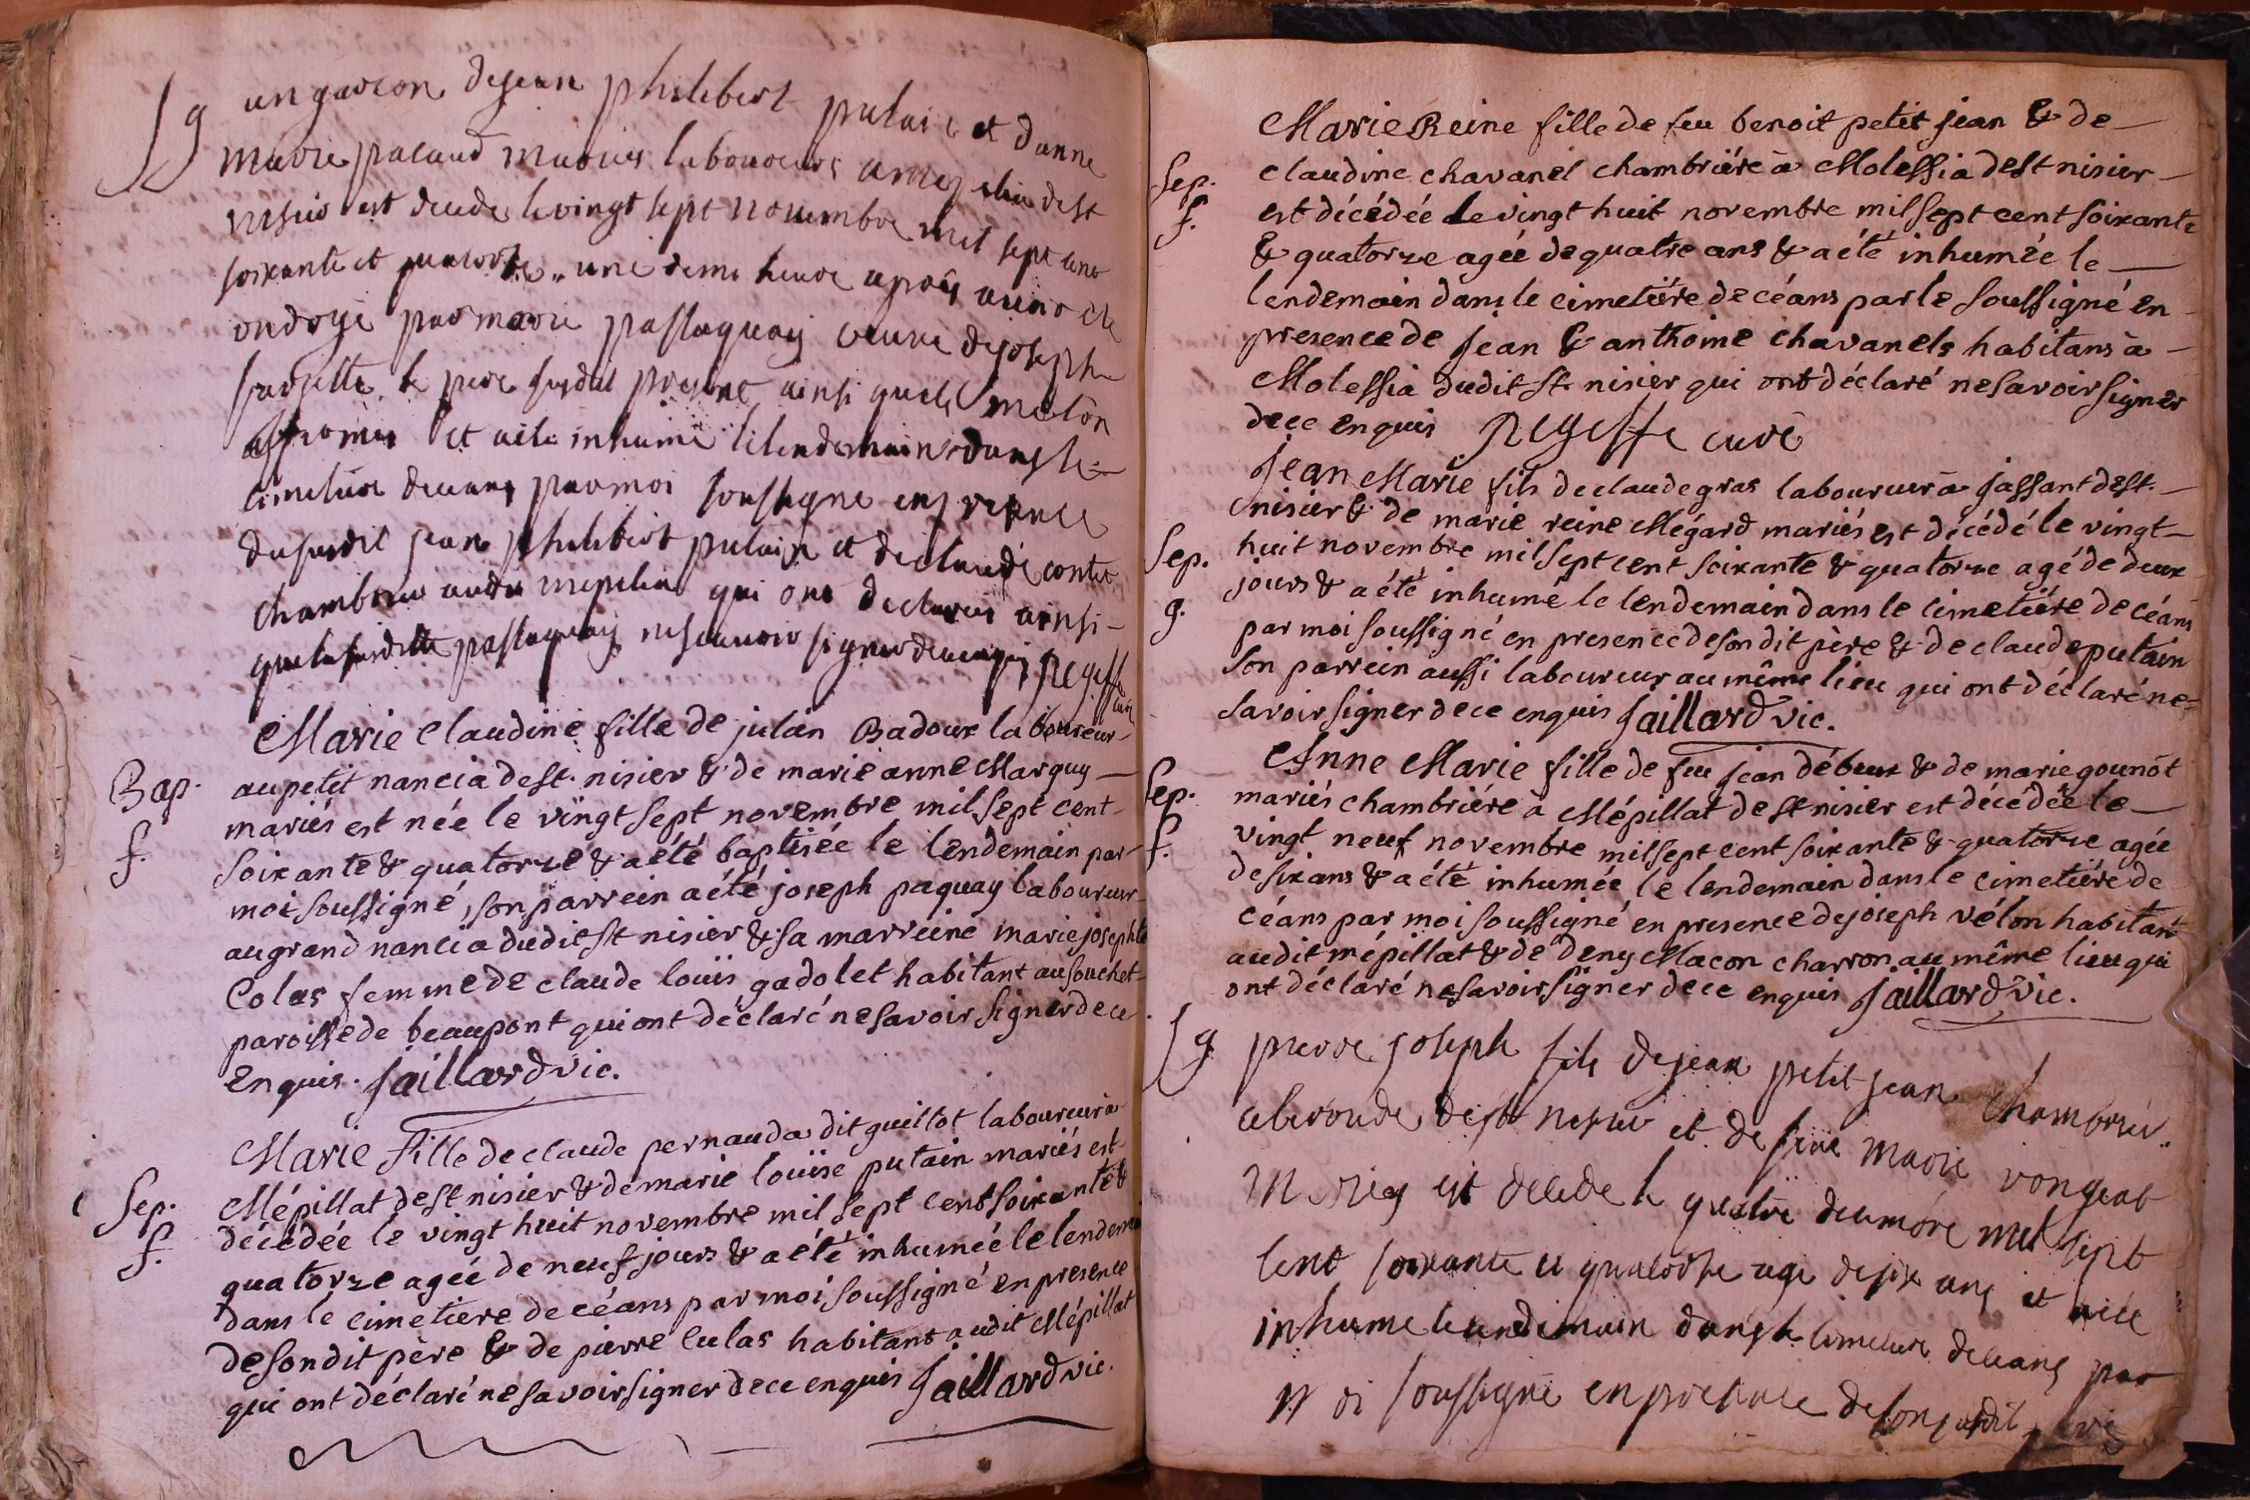 Sg
un garcon de jean philibert putain et d'anne
marie pacaud mariés laboureurs a de st
nisier est decede le vingt sept novembre mil sept cent
soixante et quatorze une demi heure après avoir ete
ondoyé par marie pastaquay veuve de joseph
le pere susdit present ainsi que
et a ete inhumé le lendemain dans le
cimetiere de ceans par moi soussigne en presence
du susdit jean philibert putain et de claude contet
chambrier audit mepillia qui ont declarés ainsi
que la susditte pastaquay ne scavoir signer de ce enquis Regeffe
curé
Marie Claudine fille de julin Badoux laboureur
Bap.
f.
au petit nancia de st. nisier & de marie anne Marguy
mariés est née le vingt sept novembre mil sept cent
soixante & quatorze & a été baptisée le lendemain par
moi soussigné, son parrein a été joseph paquay laboureur
au grand nancia dudit st nisier & sa marreine marie josephte
Colas femme de claude louis gadolet habitant au souchet
paroisse de beaupont qui ont déclaré ne savoir signer de ce
enquis. Jaillard vic.
Marie fille de claude pernauda dit guillot laboureur a
Sep.
f.
Mépillat de st nisier & de marie louise putain mariés est
décédée le vingt huit novembre mil sept cent soixante &
quatorze agée de neuf jours & a été inhumée le lendemain
dans le cimetiere de céans par moi soussigné en presence
de son dit père & de pierre culas habitant audit Mépillat
qui ont déclaré ne savoir signer de ce enquis Jaillard vic.
Marie Reine fille de feu benoit petit jean & de
Sep.
f.
claudine chavanel chambriére à Molessia de st nisier
est décédée le vingt huit novembre mil sept cent soixante
& quatorze agée de quatre ans & a été inhumée le
lendemain dans le cimetiére de céans par le soussigné en
presence de jean & anthoine chavanels habitans à
Molessia dudit st nisier qui ont déclaré ne savoir signer
de ce enquis Regeffe curé
Jean Marie fils de claude gras laboureur à jassant de st.
Sep.
g.
nisier & de marie reine Mégard mariés est décédé le vingt
huit novembre mil sept cent soixante & quatorze agé de deux
jours & a été inhumé le lendemain dans le cimetiére de céans
par moi soussigné en presence de son dit père & de claude putain
son parrein aussi laboureur au même lieu qui ont déclaré ne
savoir signer de ce enquis Jaillard vic.
Anne Marie fille de feu jean débeux & de marie gounot
Sep.
f.
mariés chambriére à Mépillat de st nisier est décédée le
vingt neuf novembre mil sept cent soixante & quatorze agée
de six ans & a été inhumée le lendemain dans le cimetiére de
céans par moi soussigné en presence de joseph vélon habitant
audit mépillat & de deny Macon charron au même lieu qui
ont déclaré ne savoir signer de ce enquis Jaillard vic.
Sg
pierre joseph fils de jean petit jean chambrier
de st nisier et de feüe marie vongeat
mariés est decede le quatre decembre mil sept
cent soixante et quatorze age de six ans et a été
inhume le lendemain dans le cimetiere de ceans par
moi soussigné en presence de son susdit pere